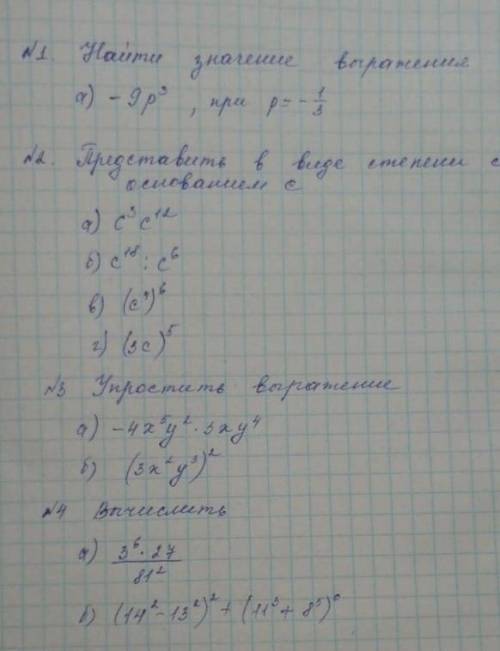 №1. Найти значение выражения
а) -9p³, при p = -1/3
№2. Представить в виде степени с
основанием с
а) c³c¹²
б) c¹⁸ : c⁶
в) (c⁷)⁶
г) (3c)⁵
№3 Упростить выражение
а) -4x⁵y² · 3xy⁴
б) (3x²y³)²
№4 Вычислить
а) 3⁶ · 27 / 81²
б) (14² - 13²)² + (11³ + 8⁵)⁰